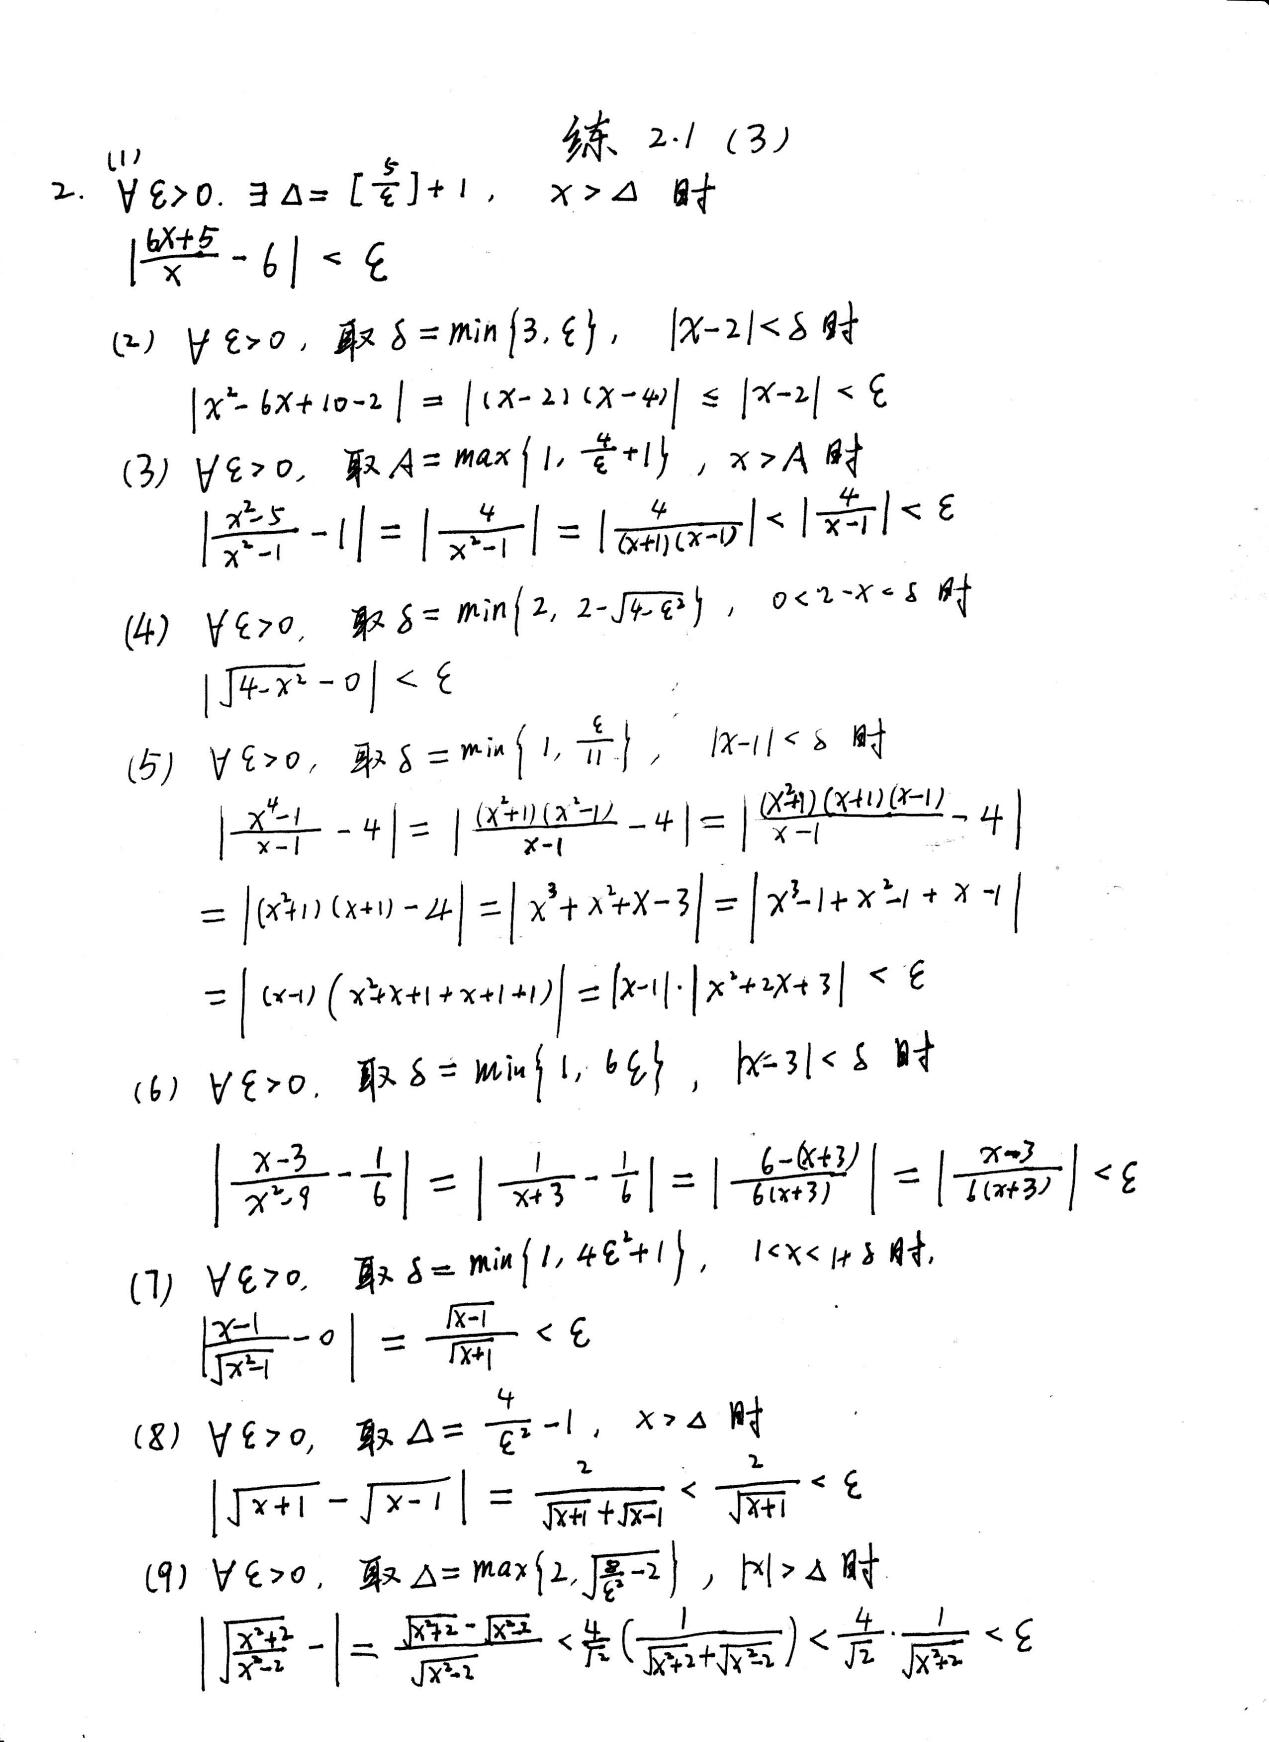 练 2.1 (3)
2. (1) ∀ε>0. ∃ Δ = [5/ε]+1, x>Δ 时
|(6x+5)/x - 6| < ε
(2) ∀ε>0, 取 δ = min{3, ε}, |x-2|<δ 时
|x²-6x+10-2| = |(x-2)(x-4)| ≤ |x-2| < ε
(3) ∀ε>0, 取 A = max{1, 4/ε+1}, x>A 时
|(x²-5)/(x²-1) - 1| = |4/(x²-1)| = |4/((x+1)(x-1))| < |4/(x-1)| < ε
(4) ∀ε>0, 取 δ = min{2, 2-√(4-ε²)}, 0<2-x<δ 时
|√(4-x²) - 0| < ε
(5) ∀ε>0, 取 δ = min{1, ε/11}, |x-1|<δ 时
|(x⁴-1)/(x-1) - 4| = |(x²+1)(x²-1)/(x-1) - 4| = |(x²+1)(x+1)(x-1)/(x-1) - 4|
= |(x²+1)(x+1)-4| = |x³+x²+x-3| = |x³-1+x²-1+x-1|
= |(x-1)(x²+x+1+x+1+1)| = |x-1|·|x²+2x+3| < ε
(6) ∀ε>0, 取 δ = min{1, 6ε}, |x-3|<δ 时
|(x-3)/(x²-9) - 1/6| = |1/(x+3) - 1/6| = |(6-(x+3))/(6(x+3))| = |(x-3)/(6(x+3))| < ε
(7) ∀ε>0, 取 δ = min{1, 4ε²+1}, 1<x<1+δ 时,
|(x-1)/√(x²-1) - 0| = √(x-1)/√(x+1) < ε
(8) ∀ε>0, 取 Δ = 4/ε² - 1, x>Δ 时
|√(x+1) - √(x-1)| = 2/(√(x+1)+√(x-1)) < 2/√(x+1) < ε
(9) ∀ε>0, 取 Δ = max{2, √(8/ε²-2)}, |x|>Δ 时
|√((x²+2)/(x²-2)) - | = (√(x²+2)-√(x²-2))/√(x²-2) < 4/√2 (1/(√(x²+2)+√(x²-2))) < 4/√2 · 1/√(x²+2) < ε